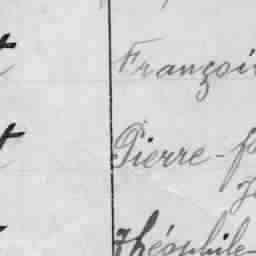 t Françoi
t Pierre-
Théophile-